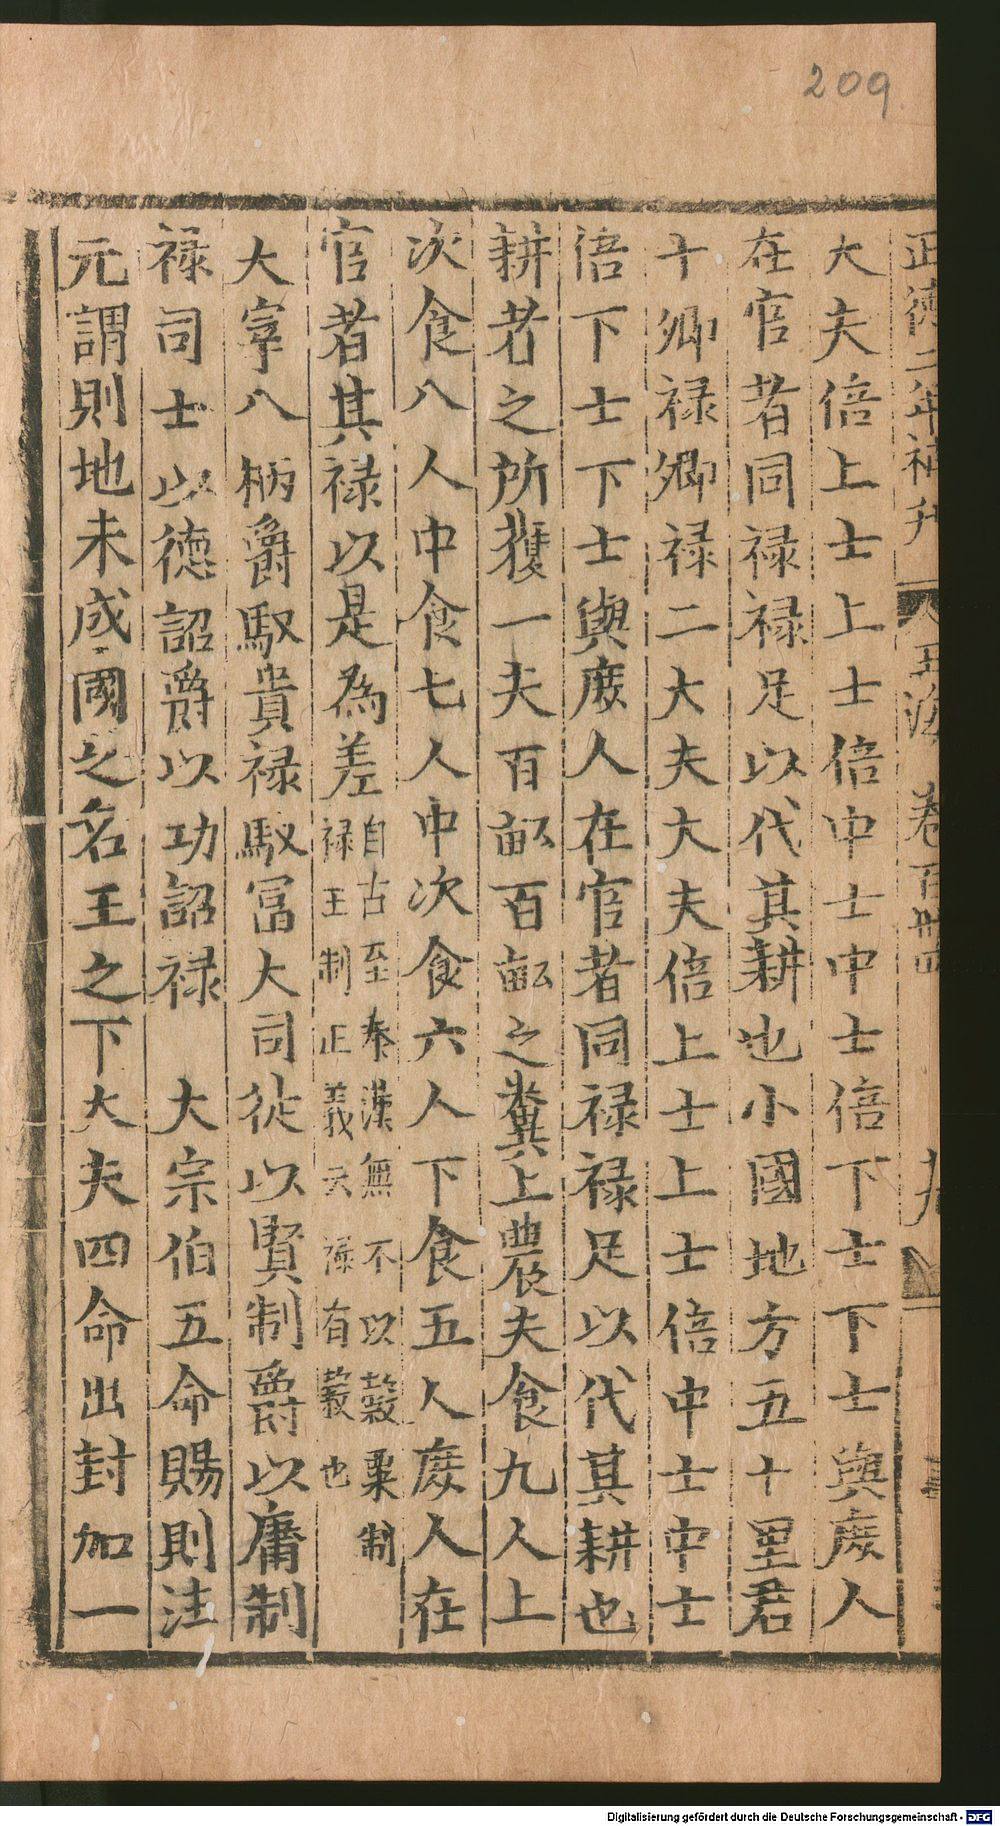 209
正德二年補刊 玉海 卷百卅四 十九
大夫倍上士上士倍中士中士倍下士下士與庻人
在官者同禄禄足以代其耕也小國地方五十里君
十卿禄卿禄二大夫大夫倍上士上士倍中士中士
倍下士下士與庻人在官者同禄禄足以代其耕也
耕者之所獲一夫百畝百畝之糞上農夫食九人上
次食八人中食七人中次食六人下食五人庻人在
官者其禄以是為差自古至秦漢無不以穀粟制
禄王制正義云禄有穀也
大宰八柄爵馭貴禄馭冨大司徒以賢制爵以庸制
禄司士以德詔爵以功詔禄 大宗伯五命賜則注
元謂則地未成國之名王之下大夫四命出封加一
Digitalisierung gefördert durch die Deutsche Forschungsgemeinschaft - DFG